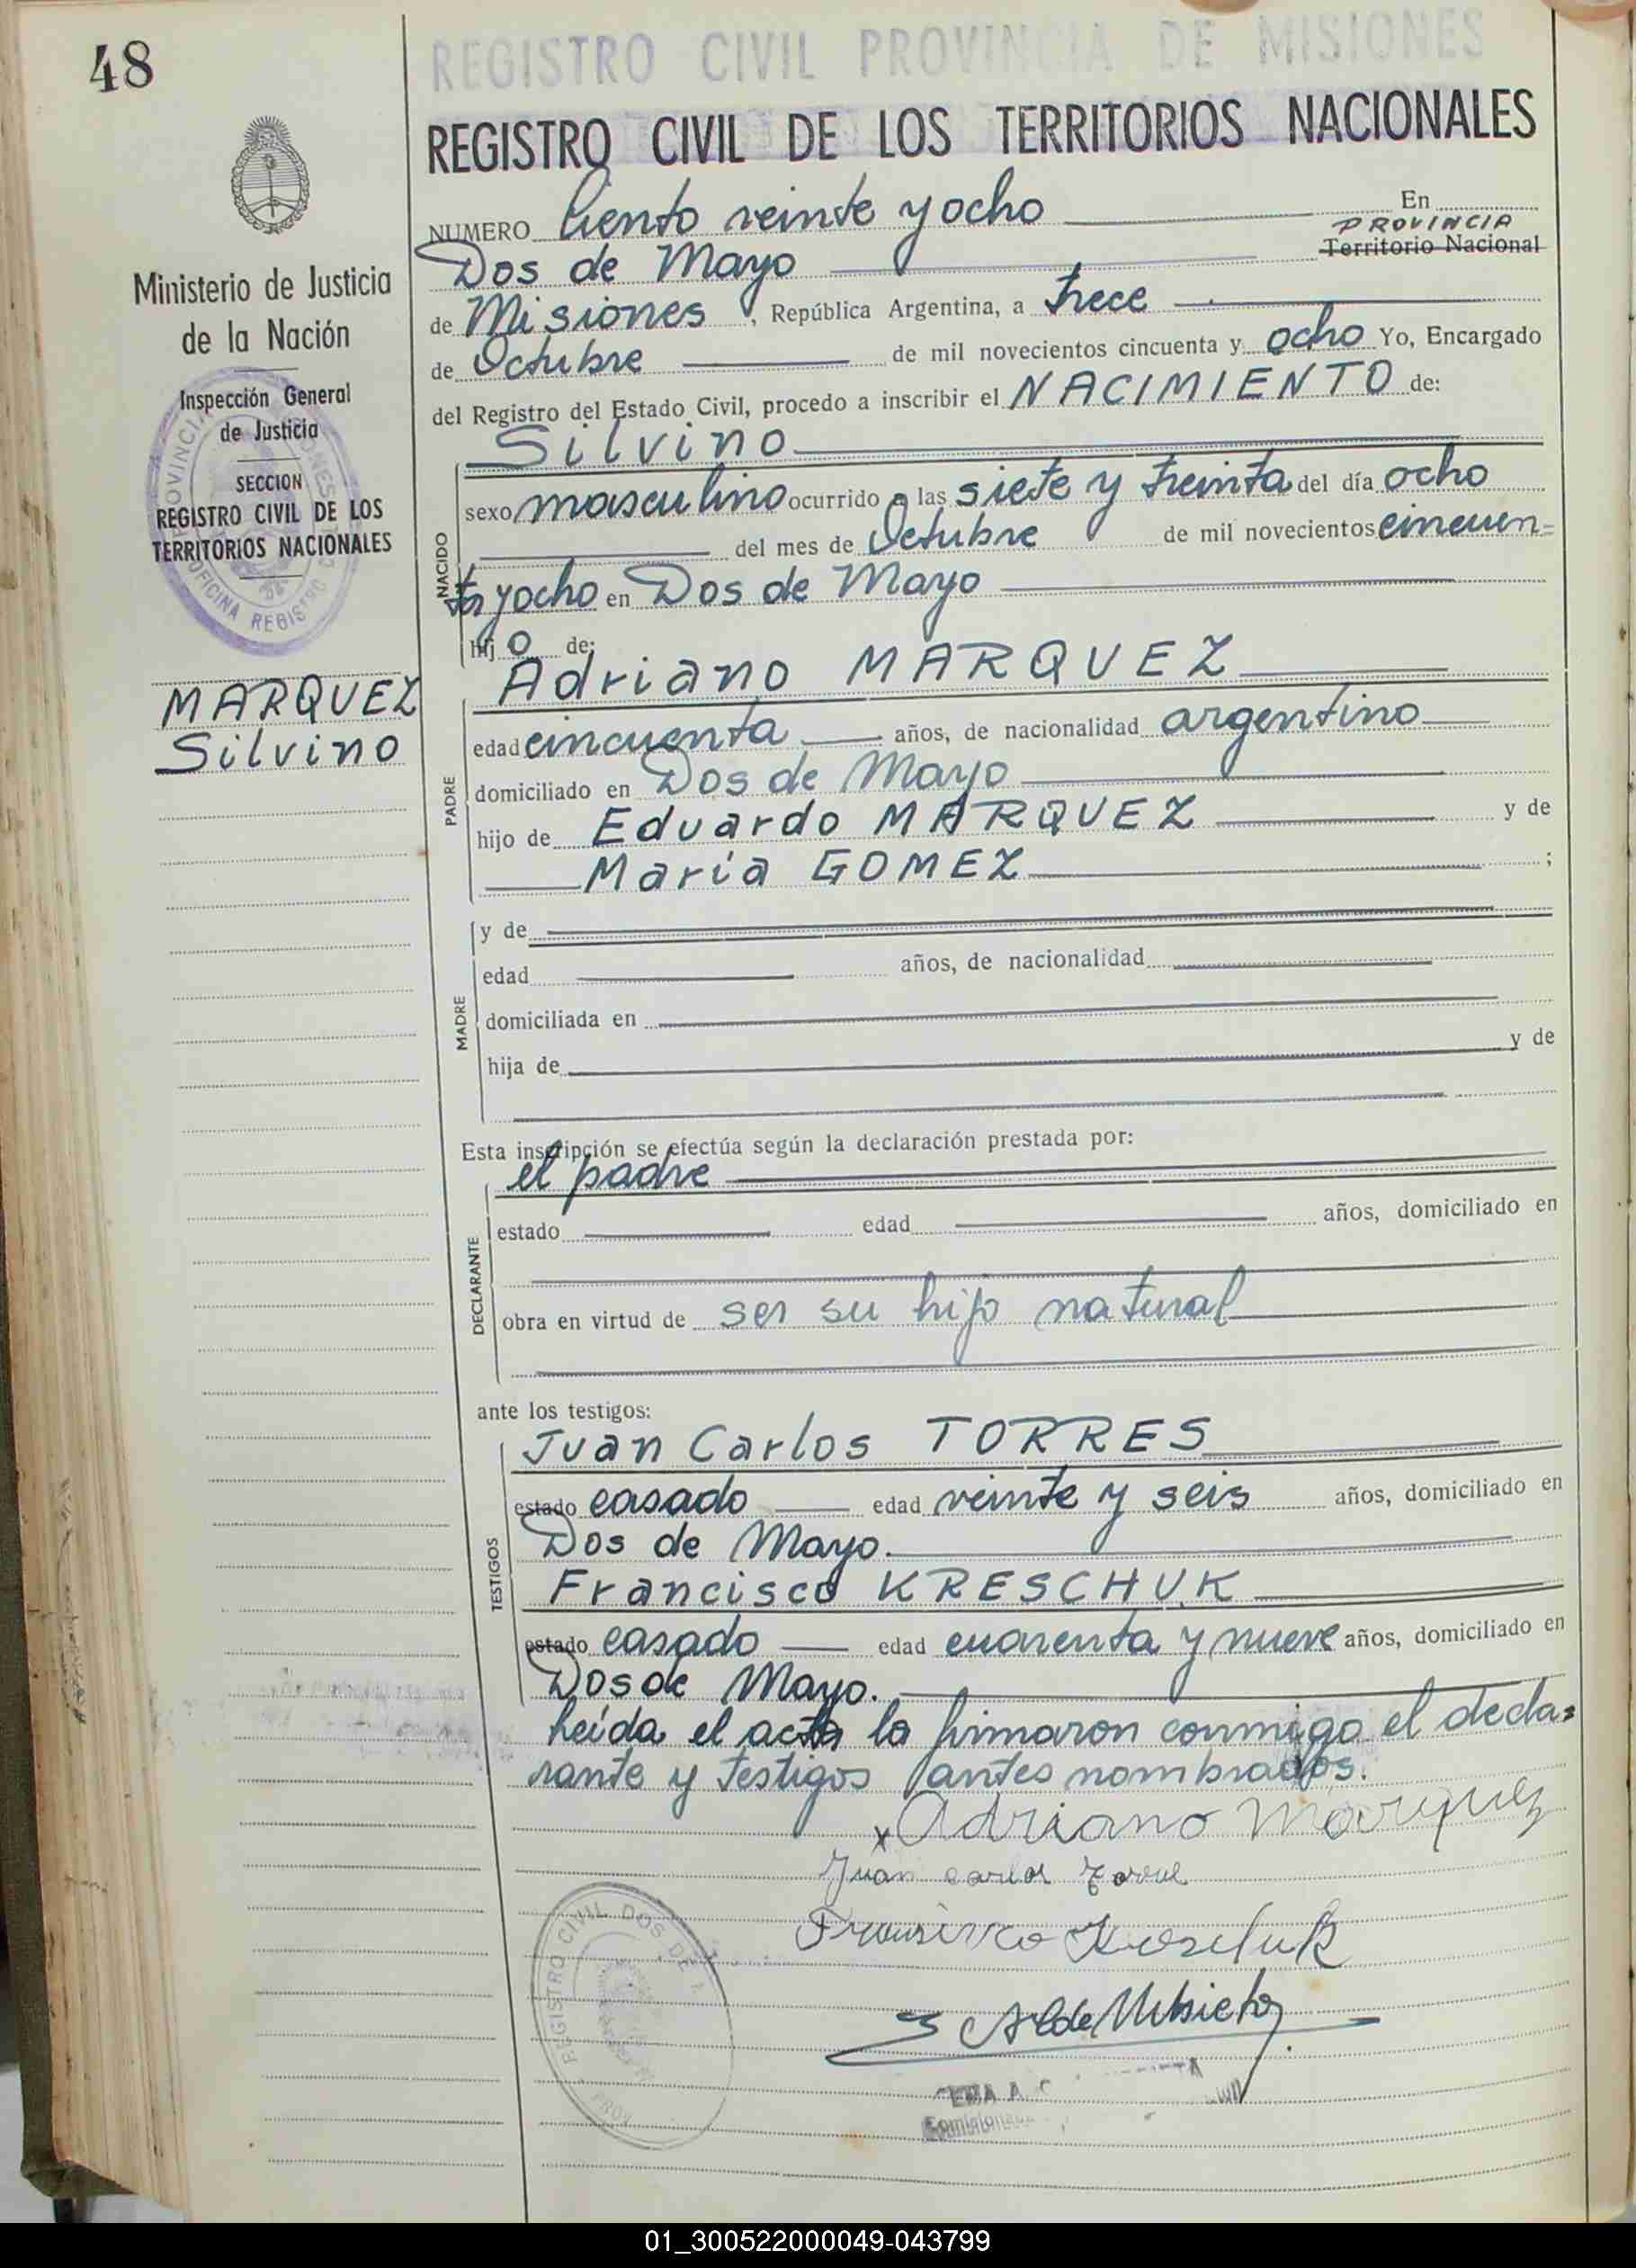 48
REGISTRO CIVIL PROVINCIA DE MISIONES
REGISTRO CIVIL DE LOS TERRITORIOS NACIONALES
Ministerio de Justicia
de la Nación
Inspección General
de Justicia
SECCION
REGISTRO CIVIL DE LOS
TERRITORIOS NACIONALES
MARQUEZ
Silvino
NUMERO Ciento veinte y ocho En
PROVINCIA
Dos de Mayo Territorio Nacional
de Misiones, República Argentina, a trece
de Octubre de mil novecientos cincuenta y ocho Yo, Encargado
del Registro del Estado Civil, procedo a inscribir el NACIMIENTO de:
Silvino
NACIDO
sexo masculino ocurrido a las siete y treinta del día ocho
del mes de Octubre de mil novecientos cincuen=
ta y ocho en Dos de Mayo
hijo de:
Adriano MARQUEZ
PADRE
edad cincuenta años, de nacionalidad argentino
domiciliado en Dos de Mayo
hijo de Eduardo MARQUEZ y de
María GOMEZ ;
MADRE
y de
edad años, de nacionalidad
domiciliada en
hija de y de
Esta inscripción se efectúa según la declaración prestada por:
el padre
DECLARANTE
estado edad años, domiciliado en
obra en virtud de ser su hijo natural
ante los testigos:
Juan Carlos TORRES
TESTIGOS
estado casado edad veinte y seis años, domiciliado en
Dos de Mayo.
Francisco KRESCHUK
estado casado edad cuarenta y nueve años, domiciliado en
Dos de Mayo.
Leída el acta la firmaron conmigo el decla=
rante y testigos antes nombrados.
x Adriano Marquez
Juan Carlos Torres
Francisco
REGISTRO CIVIL DOS DE
01_300522000049-043799